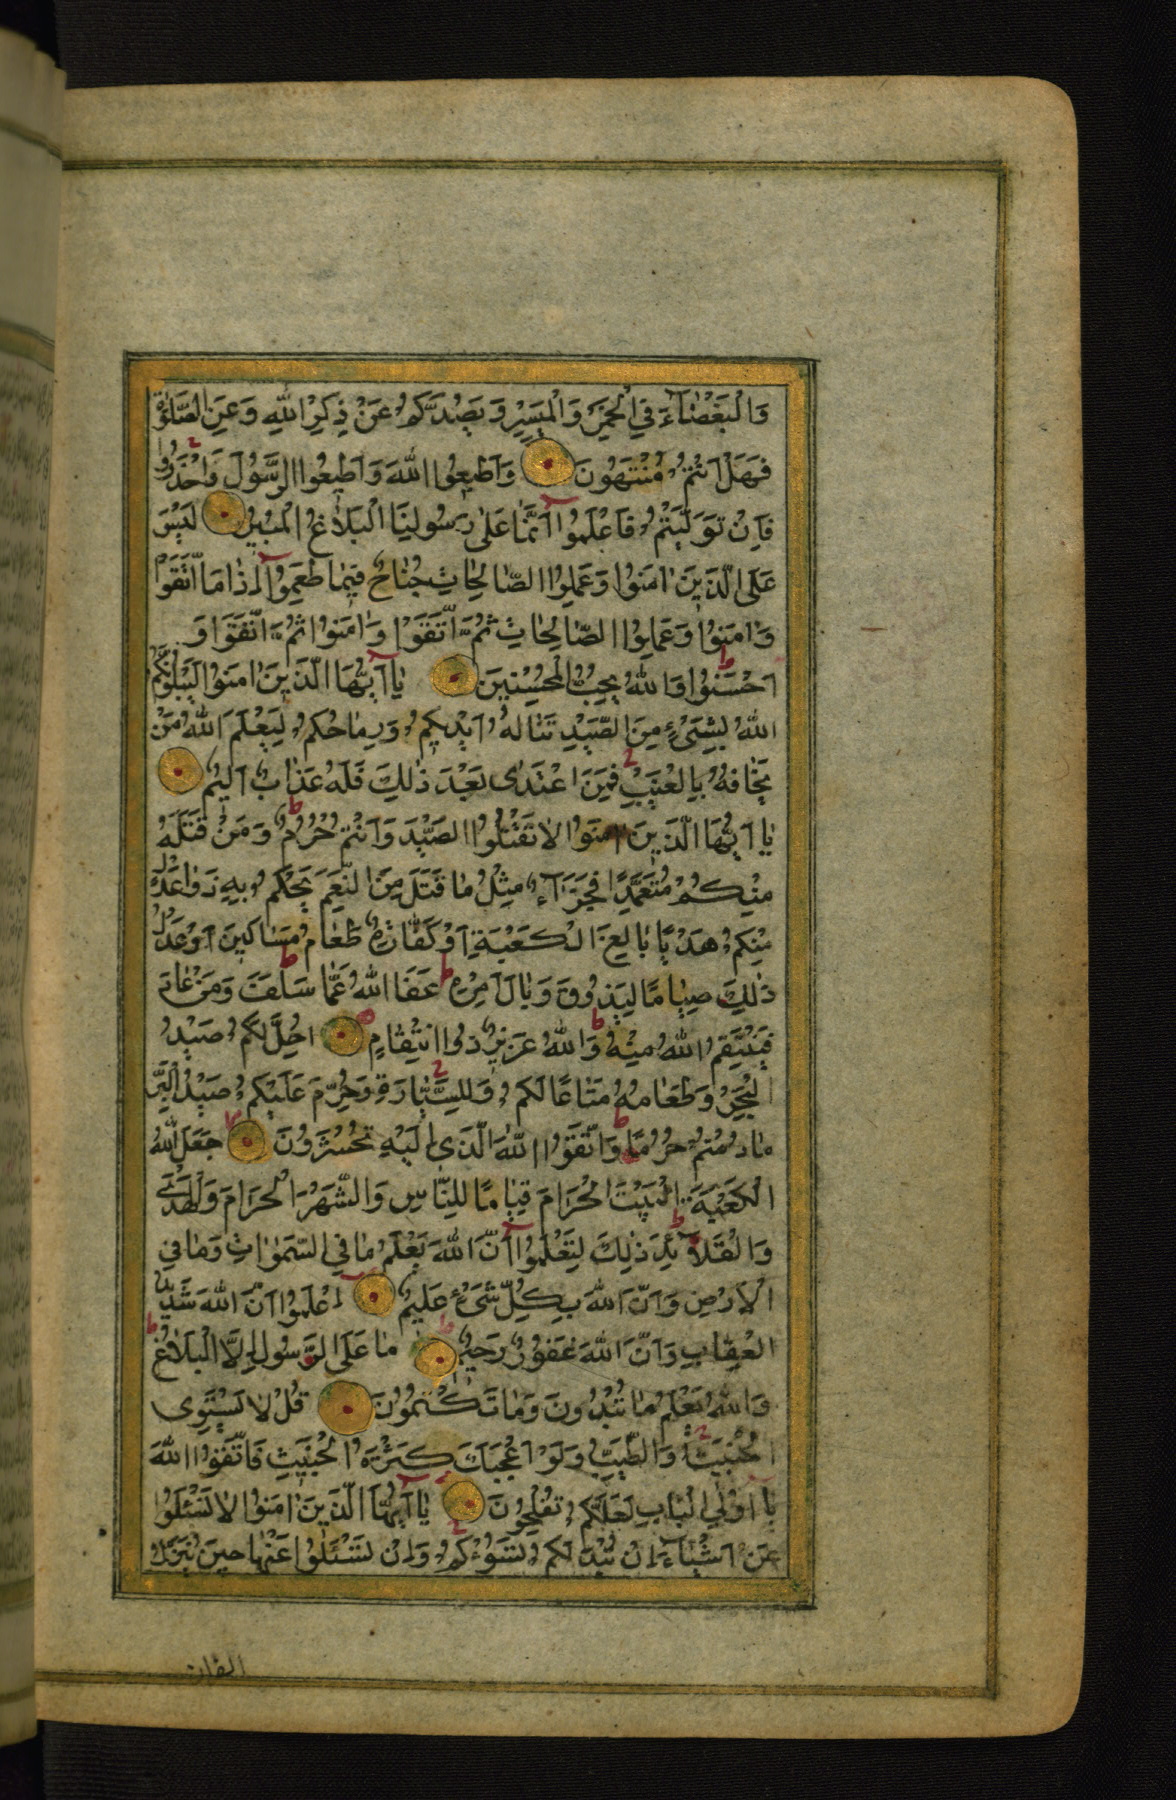 وَالْبَغْضَآءَ فِي الْخَمْرِ وَالْمَيْسِرِ وَيَصُدَّكُمْ عَنْ ذِكْرِ اللهِ وَعَنِ الصَّلٰوةِ
فَهَلْ اَنْتُمْ مُنْتَهُونَ وَاَطِيعُوا اللهَ وَاَطِيعُوا الرَّسُولَ وَاحْذَرُوا
فَاِنْ تَوَلَّيْتُمْ فَاعْلَمُوا اَنَّمَا عَلٰى رَسُولِنَا الْبَلَاغُ الْمُبِينُ لَيْسَ
عَلَى الَّذِينَ اٰمَنُوا وَعَمِلُوا الصَّالِحَاتِ جُنَاحٌ فِيمَا طَعِمُوا اِذَا مَا اتَّقَوْا
وَاٰمَنُوا وَعَمِلُوا الصَّالِحَاتِ ثُمَّ اتَّقَوْا وَاٰمَنُوا ثُمَّ اتَّقَوْا وَ
اَحْسَنُوا وَاللهُ يُحِبُّ الْمُحْسِنِينَ يَا اَيُّهَا الَّذِينَ اٰمَنُوا لَيَبْلُوَنَّكُمُ
اللهُ بِشَيْءٍ مِنَ الصَّيْدِ تَنَالُهُ اَيْدِيكُمْ وَرِمَاحُكُمْ لِيَعْلَمَ اللهُ مَنْ
يَخَافُهُ بِالْغَيْبِ فَمَنِ اعْتَدٰى بَعْدَ ذٰلِكَ فَلَهُ عَذَابٌ اَلِيمٌ
يَا اَيُّهَا الَّذِينَ اٰمَنُوا لَا تَقْتُلُوا الصَّيْدَ وَاَنْتُمْ حُرُمٌ وَمَنْ قَتَلَهُ
مِنْكُمْ مُتَعَمِّدًا فَجَزَآءٌ مِثْلُ مَا قَتَلَ مِنَ النَّعَمِ يَحْكُمُ بِهِ ذَوَا عَدْلٍ
مِنْكُمْ هَدْيًا بَالِغَ الْكَعْبَةِ اَوْ كَفَّارَةٌ طَعَامُ مَسَاكِينَ اَوْ عَدْلُ
ذٰلِكَ صِيَامًا لِيَذُوقَ وَبَالَ اَمْرِهِ عَفَا اللهُ عَمَّا سَلَفَ وَمَنْ عَادَ
فَيَنْتَقِمُ اللهُ مِنْهُ وَاللهُ عَزِيزٌ ذُوا انْتِقَامٍ اُحِلَّ لَكُمْ صَيْدُ
الْبَحْرِ وَطَعَامُهُ مَتَاعًا لَكُمْ وَلِلسَّيَّارَةِ وَحُرِّمَ عَلَيْكُمْ صَيْدُ الْبَرِّ
مَا دُمْتُمْ حُرُمًا وَاتَّقُوا اللهَ الَّذِي اِلَيْهِ تُحْشَرُونَ جَعَلَ اللهُ
الْكَعْبَةَ الْبَيْتَ الْحَرَامَ قِيَامًا لِلنَّاسِ وَالشَّهْرَ الْحَرَامَ وَالْهَدْيَ
وَالْقَلَآئِدَ ذٰلِكَ لِتَعْلَمُوا اَنَّ اللهَ يَعْلَمُ مَا فِي السَّمٰوَاتِ وَمَا فِي
الْاَرْضِ وَاَنَّ اللهَ بِكُلِّ شَيْءٍ عَلِيمٌ اِعْلَمُوا اَنَّ اللهَ شَدِيدُ
الْعِقَابِ وَاَنَّ اللهَ غَفُورٌ رَحِيمٌ مَا عَلَى الرَّسُولِ اِلَّا الْبَلَاغُ
وَاللهُ يَعْلَمُ مَا تُبْدُونَ وَمَا تَكْتُمُونَ قُلْ لَا يَسْتَوِي
الْخَبِيثُ وَالطَّيِّبُ وَلَوْ اَعْجَبَكَ كَثْرَةُ الْخَبِيثِ فَاتَّقُوا اللهَ
يَا اُولِي الْاَلْبَابِ لَعَلَّكُمْ تُفْلِحُونَ يَا اَيُّهَا الَّذِينَ اٰمَنُوا لَا تَسْئَلُوا
عَنْ اَشْيَآءَ اِنْ تُبْدَ لَكُمْ تَسُؤْكُمْ وَاِنْ تَسْئَلُوا عَنْهَا حِينَ يُنَزَّلُ
القران